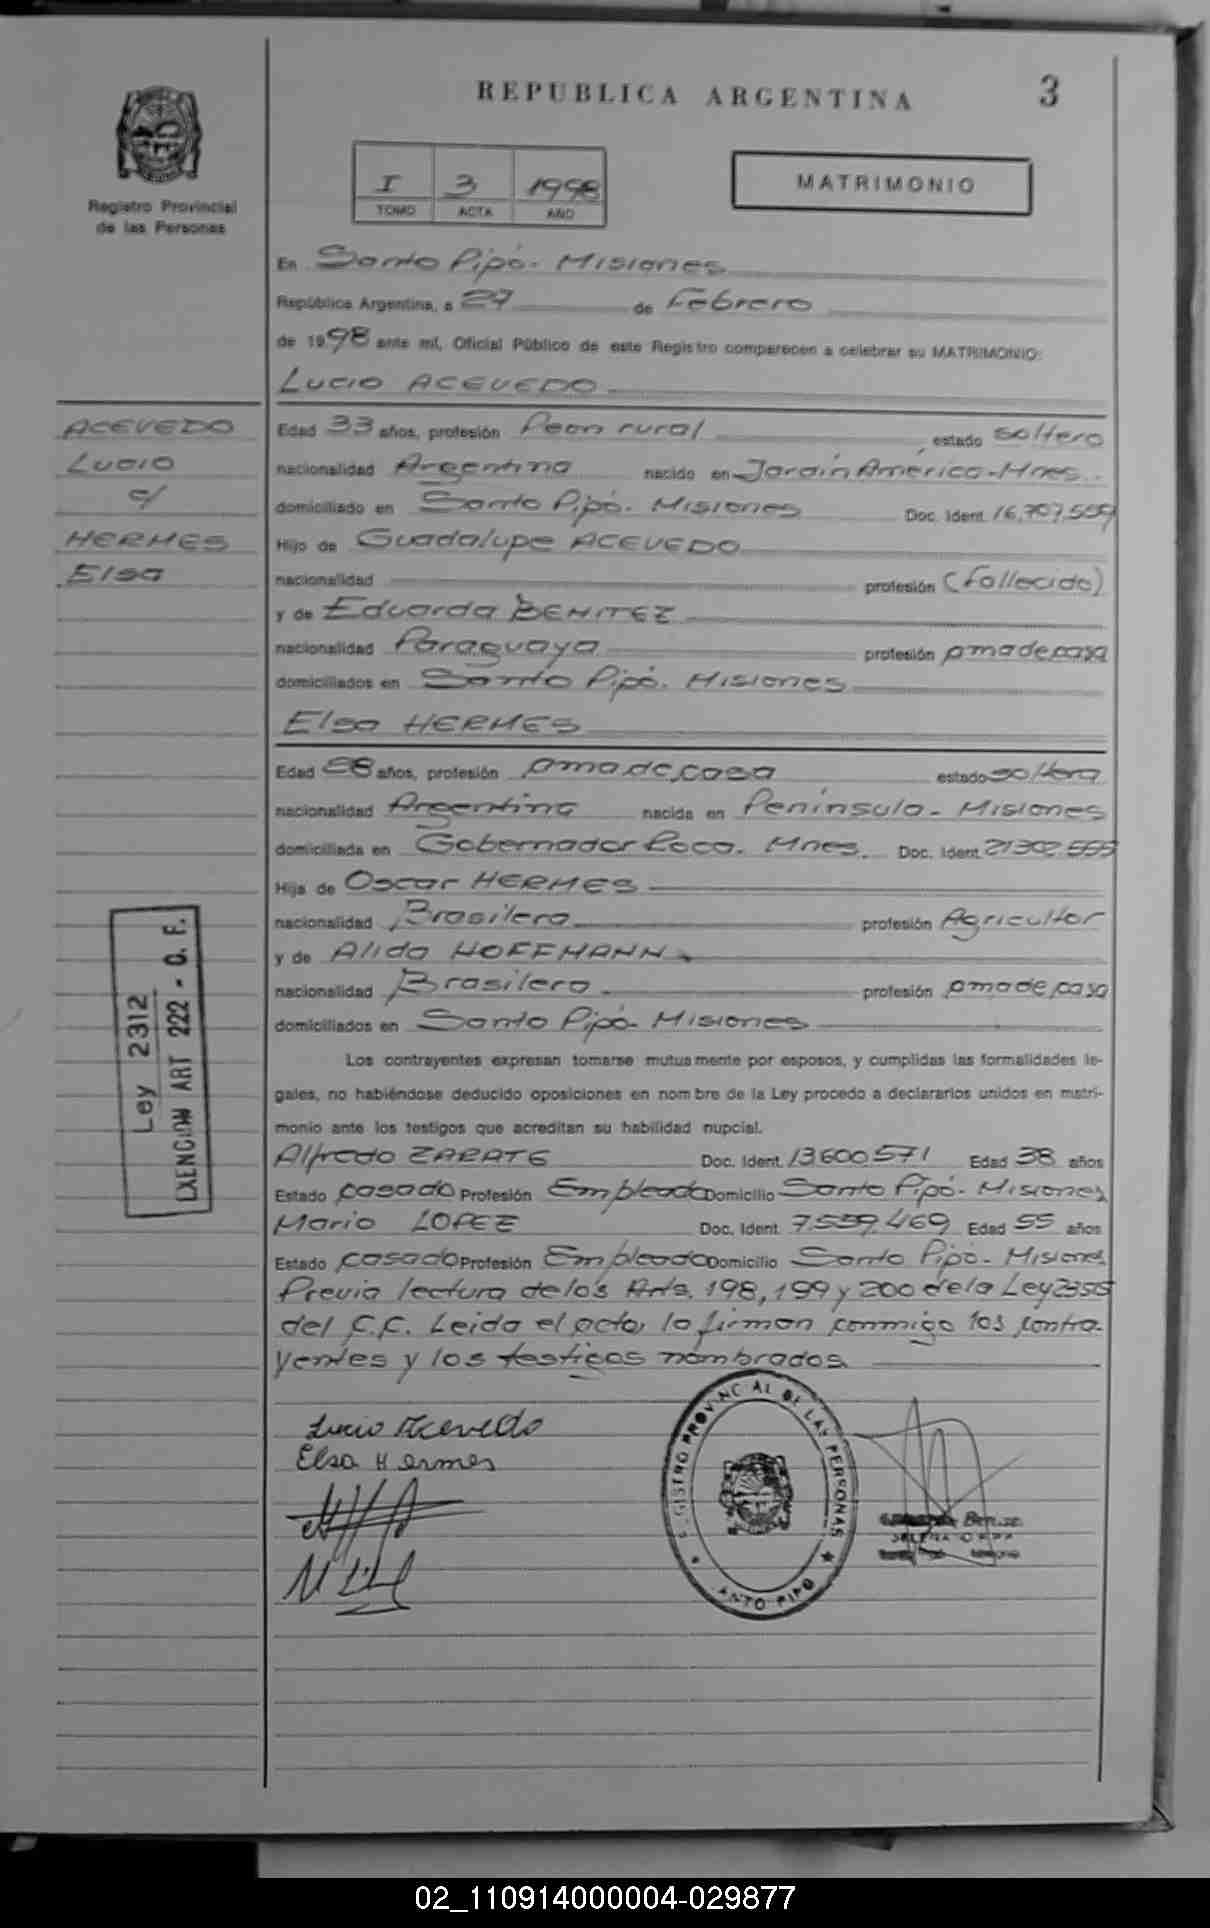 REPUBLICA ARGENTINA
3
Registro Provincial
de las Personas
I 3 1998
TOMO ACTA AÑO
MATRIMONIO
En Santo Pipó - Misiones
República Argentina, a 27 de Febrero
de 1998 ante mí, Oficial Público de este Registro comparecen a celebrar su MATRIMONIO:
Lucio ACEVEDO
ACEVEDO
Lucio
c/
HERMES
Elsa
Edad 33 años, profesión Peon rural estado soltero
nacionalidad Argentina nacido en Jardín América - Mnes.
domiciliado en Santo Pipó - Misiones Doc. Ident. 16.707.559
Hijo de Guadalupe ACEVEDO
nacionalidad profesión (fallecido)
y de Eduarda BENITEZ
nacionalidad Paraguaya profesión ama de casa
domiciliados en Santo Pipó. Misiones
Elsa HERMES
Edad 28 años, profesión ama de casa estado soltera
nacionalidad Argentina nacida en Península - Misiones
domiciliada en Gobernador Roca. Mnes. Doc. Ident. 21302.555
Hija de Oscar HERMES
nacionalidad Brasilera profesión Agricultor
y de Alida HOFFMANN
nacionalidad Brasilera profesión ama de casa
domiciliados en Santo Pipó - Misiones
Ley 2312
EXENCION ART 222 - C. F.
Los contrayentes expresan tomarse mutuamente por esposos, y cumplidas las formalidades le-
gales, no habiéndose deducido oposiciones en nombre de la Ley procedo a declararlos unidos en matri-
monio ante los testigos que acreditan su habilidad nupcial.
Alfredo ZARATE Doc. Ident. 13600571 Edad 38 años
Estado casado Profesión Empleado Domicilio Santo Pipó - Misiones
Mario LOPEZ Doc. Ident. 7.559.469 Edad 55 años
Estado casado Profesión Empleado Domicilio Santo Pipó - Misiones
Previa lectura de los Arts. 198, 199 y 200 de la Ley
del C.C. Leida el acta, la firman conmigo los contra-
yentes y los testigos nombrados
Lucio Acevedo
Elsa Hermes
REGISTRO PROVINCIAL DE LAS PERSONAS
SANTO PIPO
02_110914000004-029877